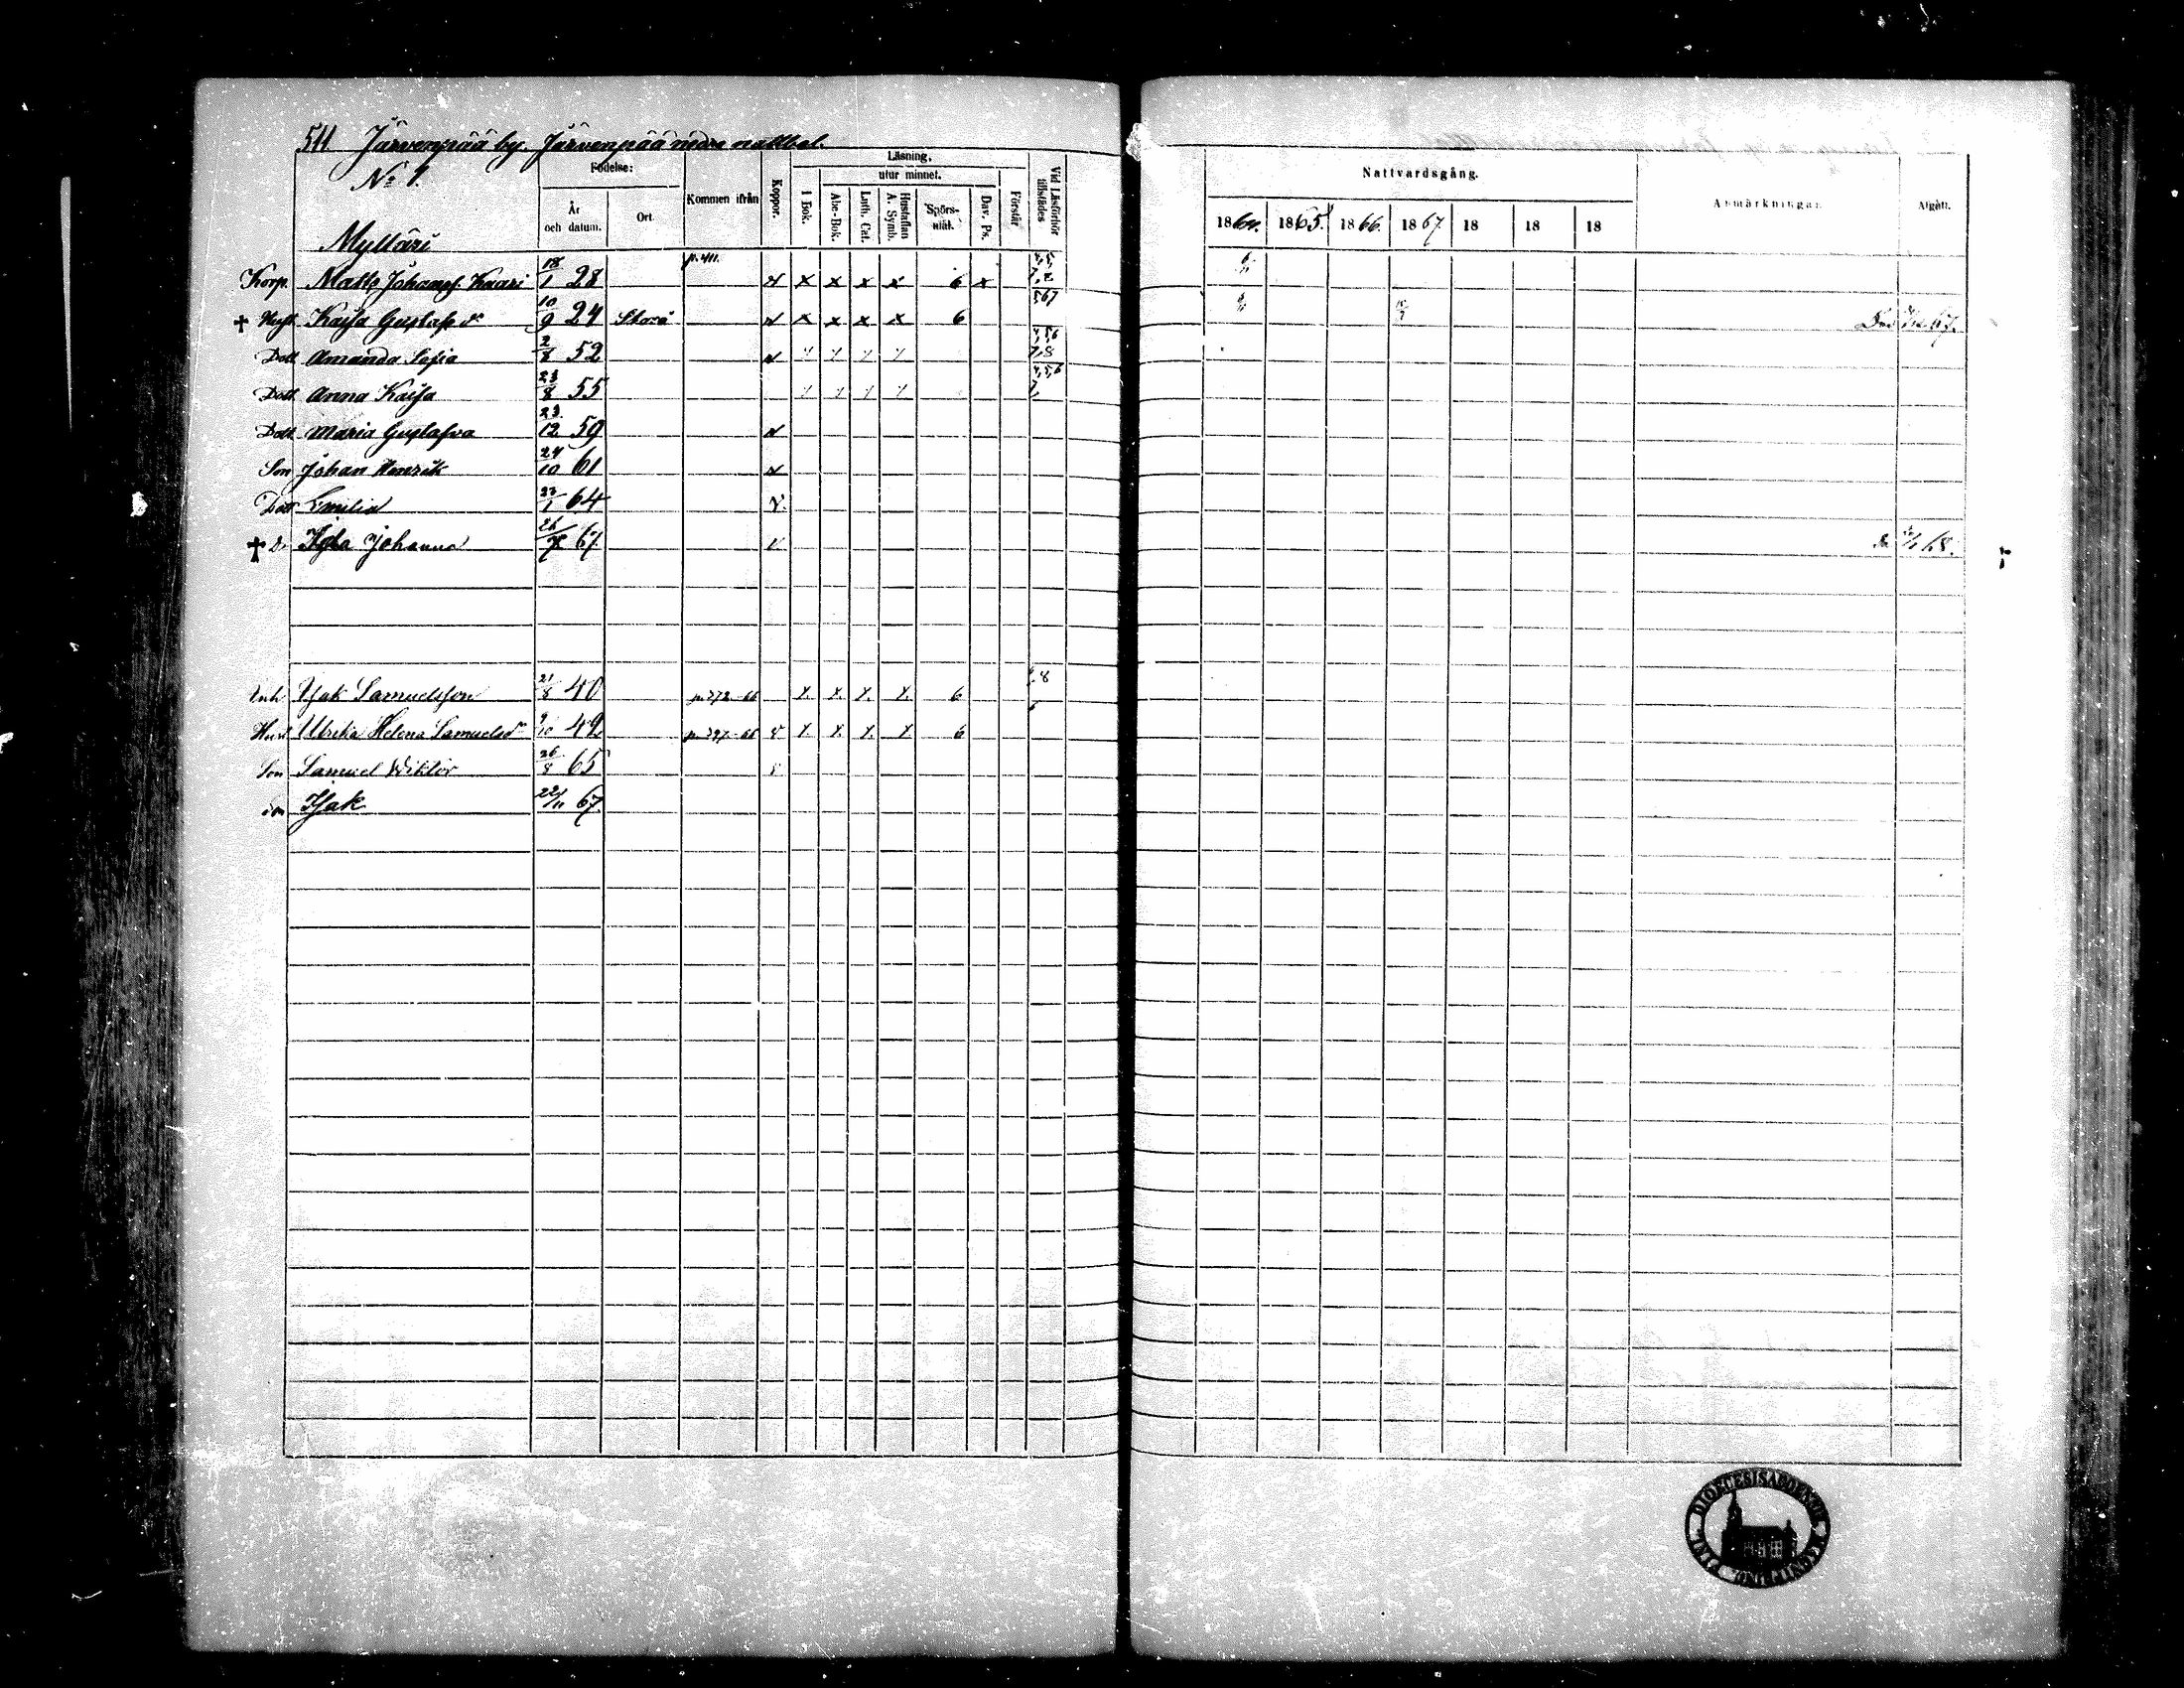 511 Järvenpää by. Järvenpää nedre nattbol.
No 1.
Födelse:
År och datum.
Ort
Kommen ifrån
Koppor.
Läsning,
utur minnet.
I Bok.
Abc-Bok.
Luth. Cat.
Hustaflan A. Symb.
Spörsmål.
Dav. Ps.
Förstår
Vid Läsförhör tillstädes
Nattvardsgång.
1864. 1865. 1866. 1867. 18 18 18
Anmärkningar.
Afgått.
Mylläri
Korp. Matts Johanss. Kaari 18/1 28 p. 411. v x x x x 6 x
† Hust. Kaisa Gustafsdr 10/9 24 Storå v x x x x 6 567 67.
Dott. Amanda Sofia 2/8 52 v 7,8
Dott. Anna Kaisa 23/8 55 4,5,6 7,
Dott. Maria Gustafva 23/12 59 v
Son Johan Henrik 24/10 61 v
Dott Emilia 23/1 64 v.
† D. Johanna 26/7 67. v 68.
Inh. Isak Samuelsson 21/8 40 p. 372-66 x. x. x. x. 6 8
Hust Ulrika Helena Samuelsdr 9/10 42 p. 397-66 v x. x. x. x. 6
Son Samuel Wiktor 26/8 65 v
Son Isak 22/11 67.
DIOECESIS ABOENSIS